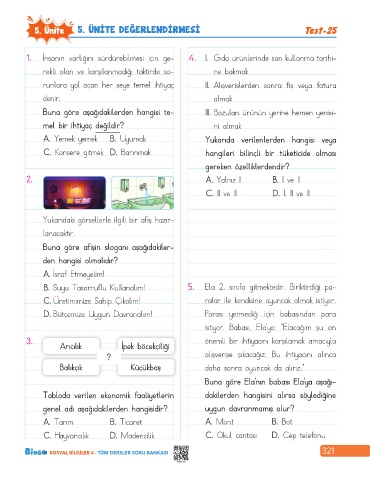 5. Ünite
5. ÜNİTE DEĞERLENDİRMESİ
Test-25
1. İnsanın varlığını sürdürebilmesi için ge-
rekli olan ve karşılanmadığı taktirde so-
runlara yol açan her şeye temel ihtiyaç
denir.
Buna göre aşağıdakilerden hangisi te-
mel bir ihtiyaç değildir?
A. Yemek yemek B. Uyumak
C. Konsere gitmek D. Barınmak
2.
Yukarıdaki görsellerle ilgili bir afiş hazır-
lanacaktır.
Buna göre afişin sloganı aşağıdakiler-
den hangisi olmalıdır?
A. İsraf Etmeyelim!
B. Suyu Tasarruflu Kullanalım!
C. Üretimimize Sahip Çıkalım!
D. Bütçemize Uygun Davranalım!
3.
Arıcılık
İpek böcekçiliği
?
Balıkçık
Küçükbaş
Tabloda verilen ekonomik faaliyetlerin
genel adı aşağıdakilerden hangisidir?
A. Tarım B. Ticaret
C. Hayvancılık D. Madencilik
4. I. Gıda ürünlerinde son kullanma tarihi-
ne bakmak
II. Alışverişlerden sonra fiş veya fatura
almak
III. Bozulan ürünün yerine hemen yenisi-
ni almak
Yukarıda verilenlerden hangisi veya
hangileri bilinçli bir tüketicide olması
gereken özelliklerdendir?
A. Yalnız I B. I ve II
C. II ve III D. I, II ve III
5. Ela 2. sınıfa gitmektedir. Biriktirdiği pa-
ralar ile kendisine oyuncak almak istiyor.
Parası yetmediği için babasından para
istiyor. Babası, Ela'ya: "Elacığım şu an
önemli bir ihtiyacını karşılamak amacıyla
alışverişe çıkacağız. Bu ihtiyacını alınca
daha sonra oyuncak da alırız."
Buna göre Ela'nın babası Ela'ya aşağı-
dakilerden hangisini alırsa söylediğine
uygun davranmamış olur?
A. Mont B. Bot
C. Okul çantası D. Cep telefonu
BİNGO SOSYAL BİLGİLER 4 - TÜM DERSLER SORU BANKASI
321